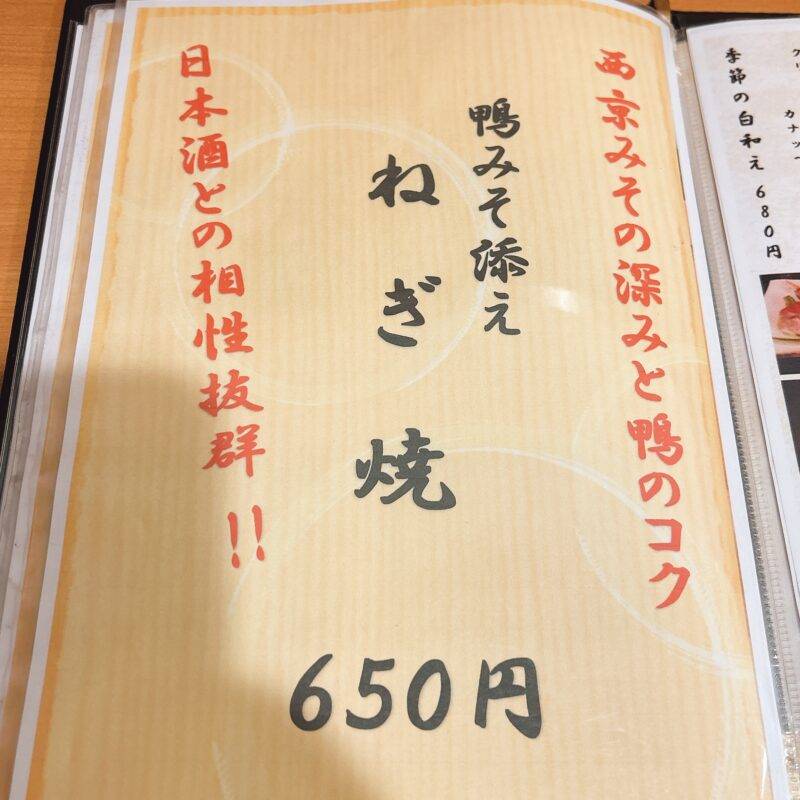 季節の白和え 680円
西京みその深みと鴨のコク
鴨みそ添え
ねぎ焼
650円
日本酒との相性抜群!!